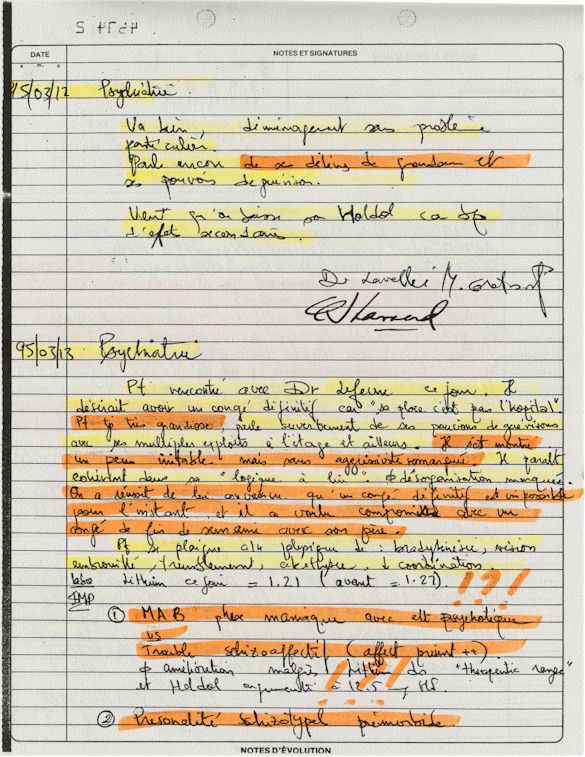 DATE
NOTES ET SIGNATURES
95/03/12 Psychiatrie
Va bien, déménagement sans problème
particulier.
Parle encore de ses délires de grandeur et
ses pouvoirs de guérison.
Veut qu'on baisse son Haldol car
d'effets secondaires.
Dr
95/03/13 Psychiatrie
Pt rencontré avec Dr ce jour. Il
désirait avoir un congé définitif car "sa place c'est pas l'hôpital"
Pt tjs très grandiose, parle ouvertement de ses pouvoirs de guérisons
avec ses multiples exploits à l'étage et ailleurs. Il s'est montré
un peu irritable mais sans aggressivité remarquée. Il paraît
cohérent dans sa "logique à lui" ø désorganisation marquée.
On a réussi de lui convaincre qu'un congé définitif est impossible
pour l'instant, et il a voulu compromis avec un
congé de fin de semaine avec son père.
Pt se plaigne de : bradykinésie, vision
embrouillé, tremblement, akathysie, ↓ coordination.
labo lithium ce jour = 1.21 (avant = 1.27). !?!
IMP
① MAB phase maniaque avec elt psychotique
vs
Trouble schizoaffectif (affect proint ++) !?!
ø amélioration malgré lithium ds "therapeutic range"
et Haldol augmenté à 12.5 HS.
② Personalité schizotypel prémorbide.
NOTES D'ÉVOLUTION